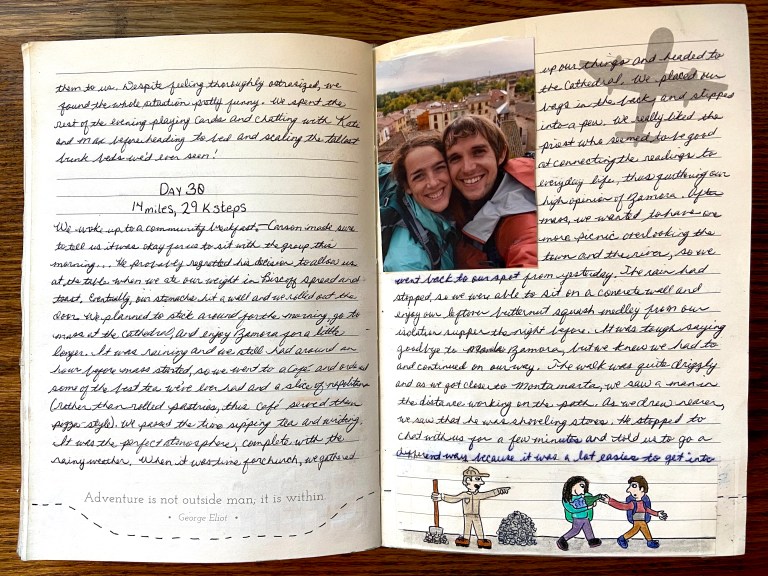 them to us. Despite feeling thoroughly ostracized, we
found the whole situation pretty funny. We spent the
rest of the evening playing cards and chatting with Kate
and Max before heading to bed and scaling the tallest
bunk beds we'd ever seen!
DAY 30
14 miles, 29K steps
We woke up to a community breakfast. Carson made sure
to tell us it was okay for us to sit with the group this
morning... He probably regretted his decision to allow us
at the table when we ate our weight in Biscoff spread and
toast. Eventually, our stomachs hit a wall and we rolled out the
door. We planned to stick around for the morning, go to
mass at the cathedral, and enjoy Zamora for a little
longer. It was raining and we still had around an
hour before mass started, so we went to a café and ordered
some of the best tea we've ever had and a slice of napolitana
(rather than rolled pastries, this café served them
pizza style). We passed the time sipping tea and writing.
It was the perfect atmosphere, complete with the
rainy weather. When it was time for church, we gathered
Adventure is not outside man; it is within.
• George Eliot •
up our things and headed to
the Cathedral. We placed our
bags in the back, and stepped
into a pew. We really liked the
priest who seemed to be good
at connecting the readings to
everyday life, thus furthering our
high opinion of Zamora. After
mass, we wanted to have one
more picnic overlooking the
town and the river, so we
went back to our spot from yesterday. The rain had
stopped, so we were able to sit on a concrete wall and
enjoy our leftover butternut squash medley from our
isolation supper the night before. It was tough saying
goodbye to Zamora, but we knew we had to
and continued on our way. The walk was quite drizzly
and as we got close to Montamarta, we saw a man in
the distance working on the path. As we drew nearer,
we saw that he was shoveling stones. He stopped to
chat with us for a few minutes and told us to go a
different way because it was a lot easier to get into